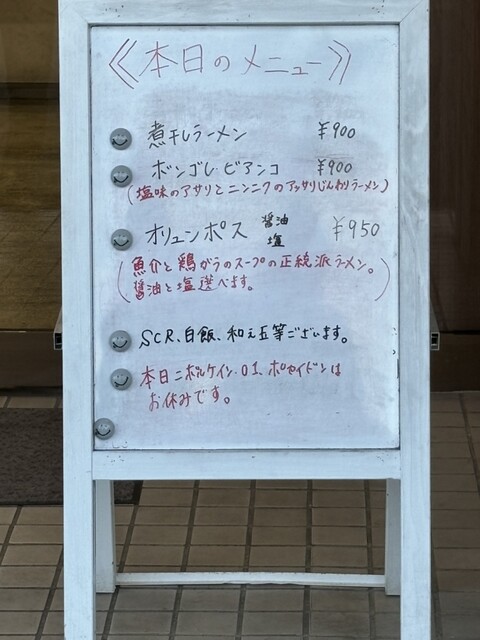 《本日のメニュー》
煮干しラーメン ¥900
ボンゴレ・ビアンコ ¥900
(塩味のアサリとニンニクのアッサリじんわりラーメン)
オリュンポス 醤油 塩 ¥950
(魚介と鶏がらのスープの正統派ラーメン。
醤油と塩選べます。)
SCR、白飯、和え玉等ございます。
本日ニボルケイン・01、ポセイドンは
お休みです。